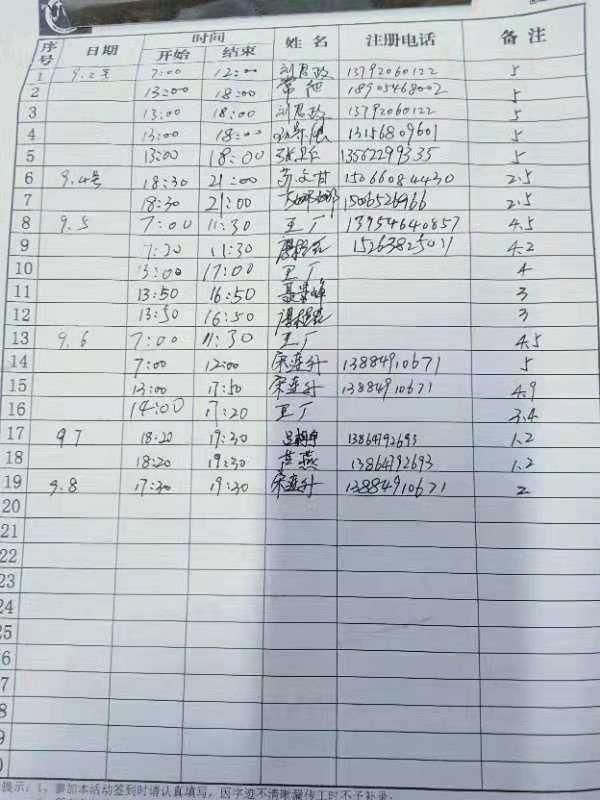 序号 日期 时间 开始 结束 姓名 注册电话 备注
1 9.2号 7:00 12:00 刘思政 13792060122 5
2 13:00 18:00 常 18905468002 5
3 13:00 18:00 刘思政 13792060122 5
4 13:00 18:00 13156809601 5
5 13:00 18:00 13562299335 5
6 9.4号 18:30 21:00 苏文甘 15066084430 2.5
7 18:30 21:00 1506526966 2.5
8 9.5 7:00 11:30 王厂 13954640857 4.5
9 7:20 11:30 15263825011 4.2
10 13:00 17:00 王厂 4
11 13:50 16:50 聂荣峰 3
12 13:50 16:50 3
13 9.6 7:00 11:30 王厂 4.5
14 7:00 12:00 宋连升 13884910671 5
15 13:00 17:50 宋连升 13884910671 4.9
16 14:00 17:20 王厂 3.4
17 9 7 18:20 19:30 13864792693 1.2
18 18:20 19:30 芦燕 13864792693 1.2
19 9.8 17:30 19:30 宋连升 13884910671 2
20
21
22
23
24
25
6
7
8
9
0
提示：1、参加本活动签到时请认真填写，因字迹不清晰最终工时不予补录。